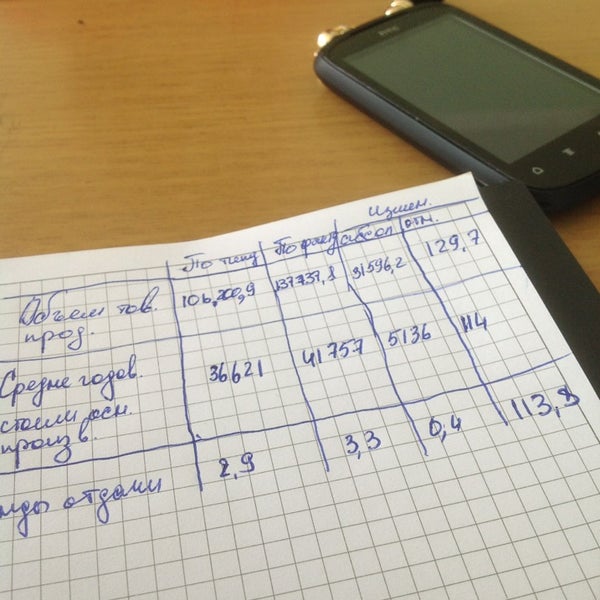 htc
Измен.
По плану По факту абсол отн.
Объем тов. 106,200,9 137737,8 31596,2 129,7
прод.
Средне годов. 36621 41757 5136 114
стоим осн.
произв.
отдачи 2,9 3,3 0,4 113,8